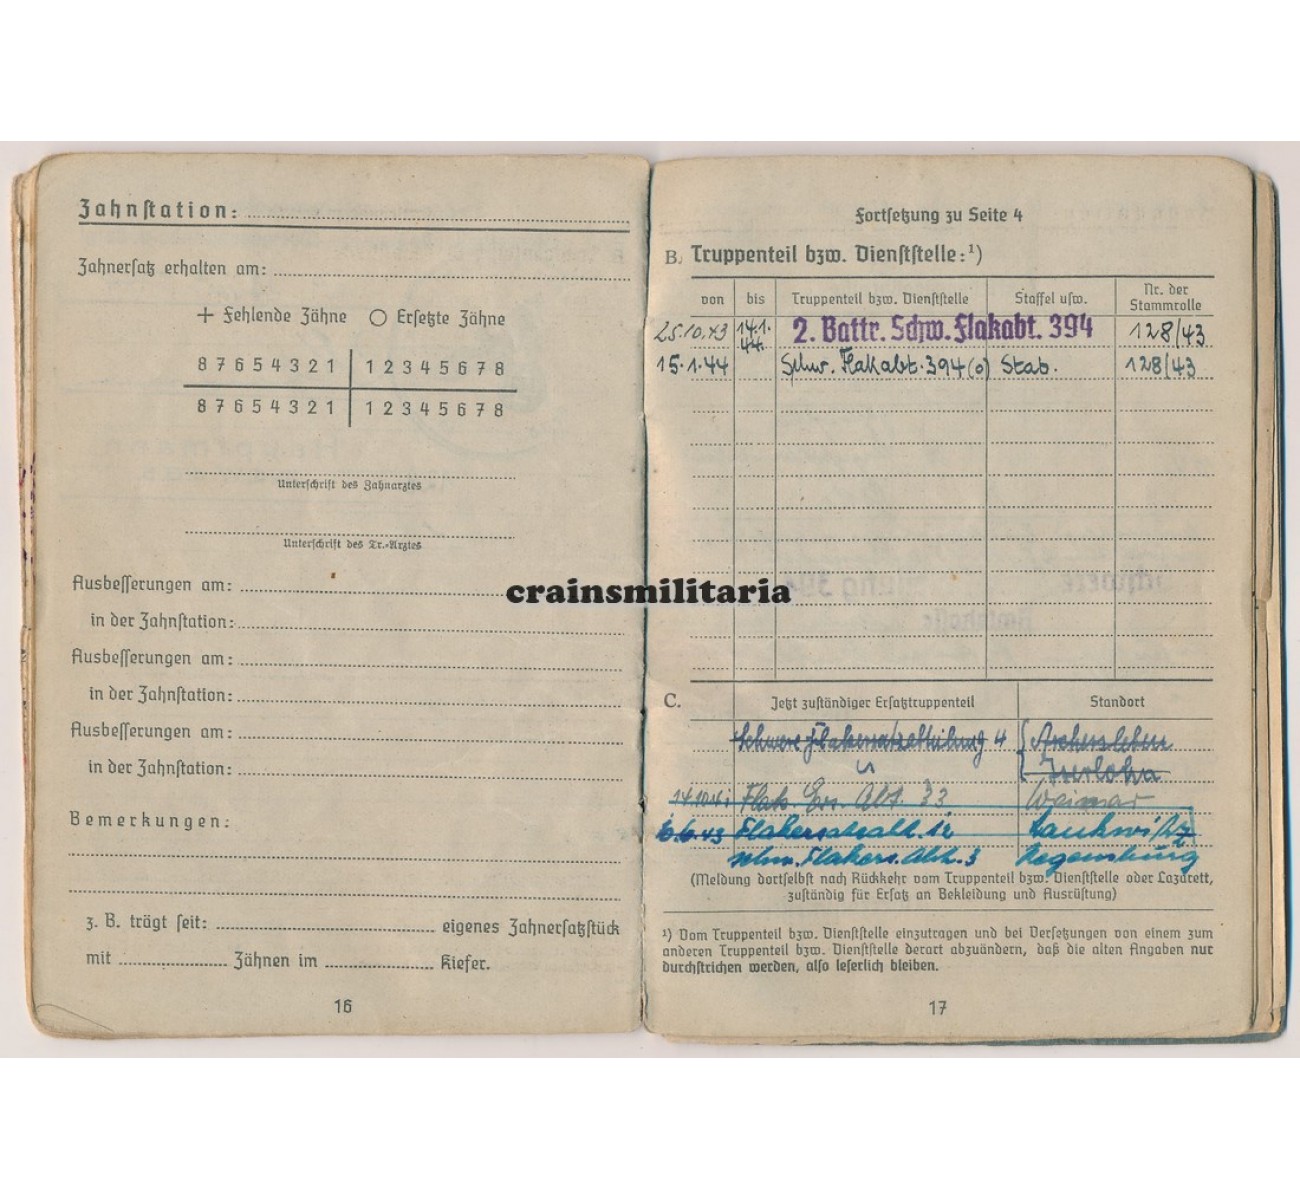 Zahnstation:
Zahnersatz erhalten am:
+ Fehlende Zähne ○ Ersetzte Zähne
8 7 6 5 4 3 2 1 | 1 2 3 4 5 6 7 8
8 7 6 5 4 3 2 1 | 1 2 3 4 5 6 7 8
Unterschrift des Zahnarztes
Unterschrift des Tr.-Arztes
Ausbesserungen am:
in der Zahnstation:
Ausbesserungen am:
in der Zahnstation:
Ausbesserungen am:
in der Zahnstation:
Bemerkungen:
z. B. trägt seit: eigenes Zahnersatzstück
mit Zähnen im Kiefer.
16
crainsmilitaria
Fortsetzung zu Seite 4
B. Truppenteil bzw. Dienststelle:¹)
von bis Truppenteil bzw. Dienststelle Staffel usw. Nr. der Stammrolle
25.10.43 14.1.44. 2. Battr. Schw. Flakabt. 394 128/43
15.1.44 Schw. Flakabt. 394 (o) Stab. 128/43
C. Jetzt zuständiger Ersatztruppenteil Standort
Schwere Flakersatzabteilung 4
Iserlohn
Flak. Ers. Abt. 33 Weimar
6.43 Flakersatzabt. 12 Lankwitz
schw. Flakers. Abt. 3 Regensburg
(Meldung dortselbst nach Rückkehr vom Truppenteil bzw. Dienststelle oder Lazarett,
zuständig für Ersatz an Bekleidung und Ausrüstung)
¹) Vom Truppenteil bzw. Dienststelle einzutragen und bei Versetzungen von einem zum
anderen Truppenteil bzw. Dienststelle derart abzuändern, daß die alten Angaben nur
durchstrichen werden, also leserlich bleiben.
17